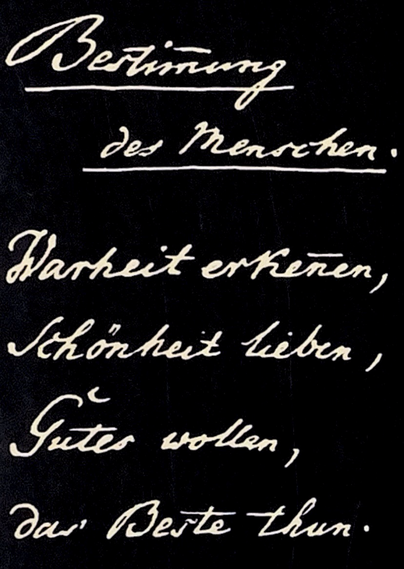 Bestim̄ung
des Menschen.
Warheit erken̄en,
Schönheit lieben,
Gutes wollen,
das Beste thun.